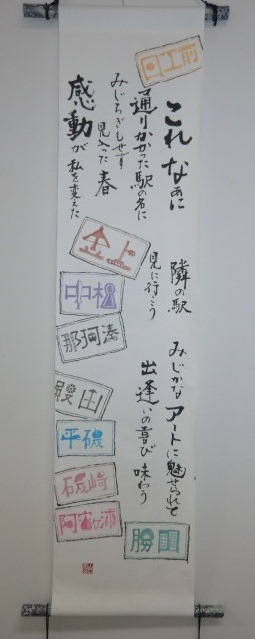 工前
これなあに
通りかかった駅の名に
みじろぎもせず
見入った春
感動が私を変えた
金上
中根
那珂湊
殿山
平磯
磯崎
阿字ヶ浦
隣の駅
見に行こう
みじかなアートに魅せられて
出逢いの喜び味わう
勝田